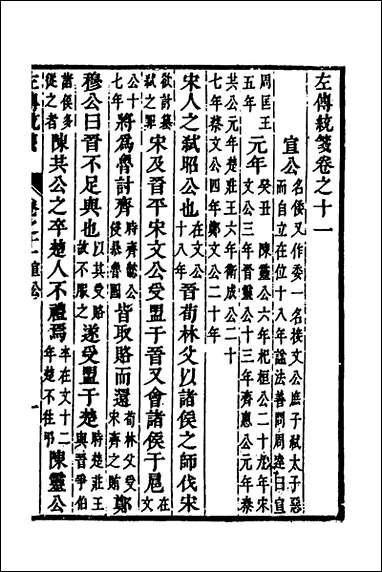 左傳統箋卷之十一
宣公名倭又作委一名接文公庶子弑太子惡而自立在位十八年諡法善問周達曰宣
周匡王五年元年癸丑陳靈公六年杞桓公二十九年宋文公三年晉靈公十三年齊惠公元年秦
共公元年楚莊王六年衛成公二十七年蔡文公四年鄭文公二十年
宋人之弑昭公也在文公十八年晉荀林父以諸侯之師伐宋
欲討簒弑之罪宋及晉平宋文公受盟于晉又會諸侯于扈在文
公十七年將爲魯討齊時齊懿公侵暴魯國皆取賂而還荀林父受宋齊之賂鄭
穆公曰晉不足與也以其受賂故不服之遂受盟于楚時楚莊王與晉爭伯
諸侯多從之者陳共公之卒楚人不禮焉卒在文十二年楚不往弔陳靈公
左傳統箋 卷之十一宣公 一